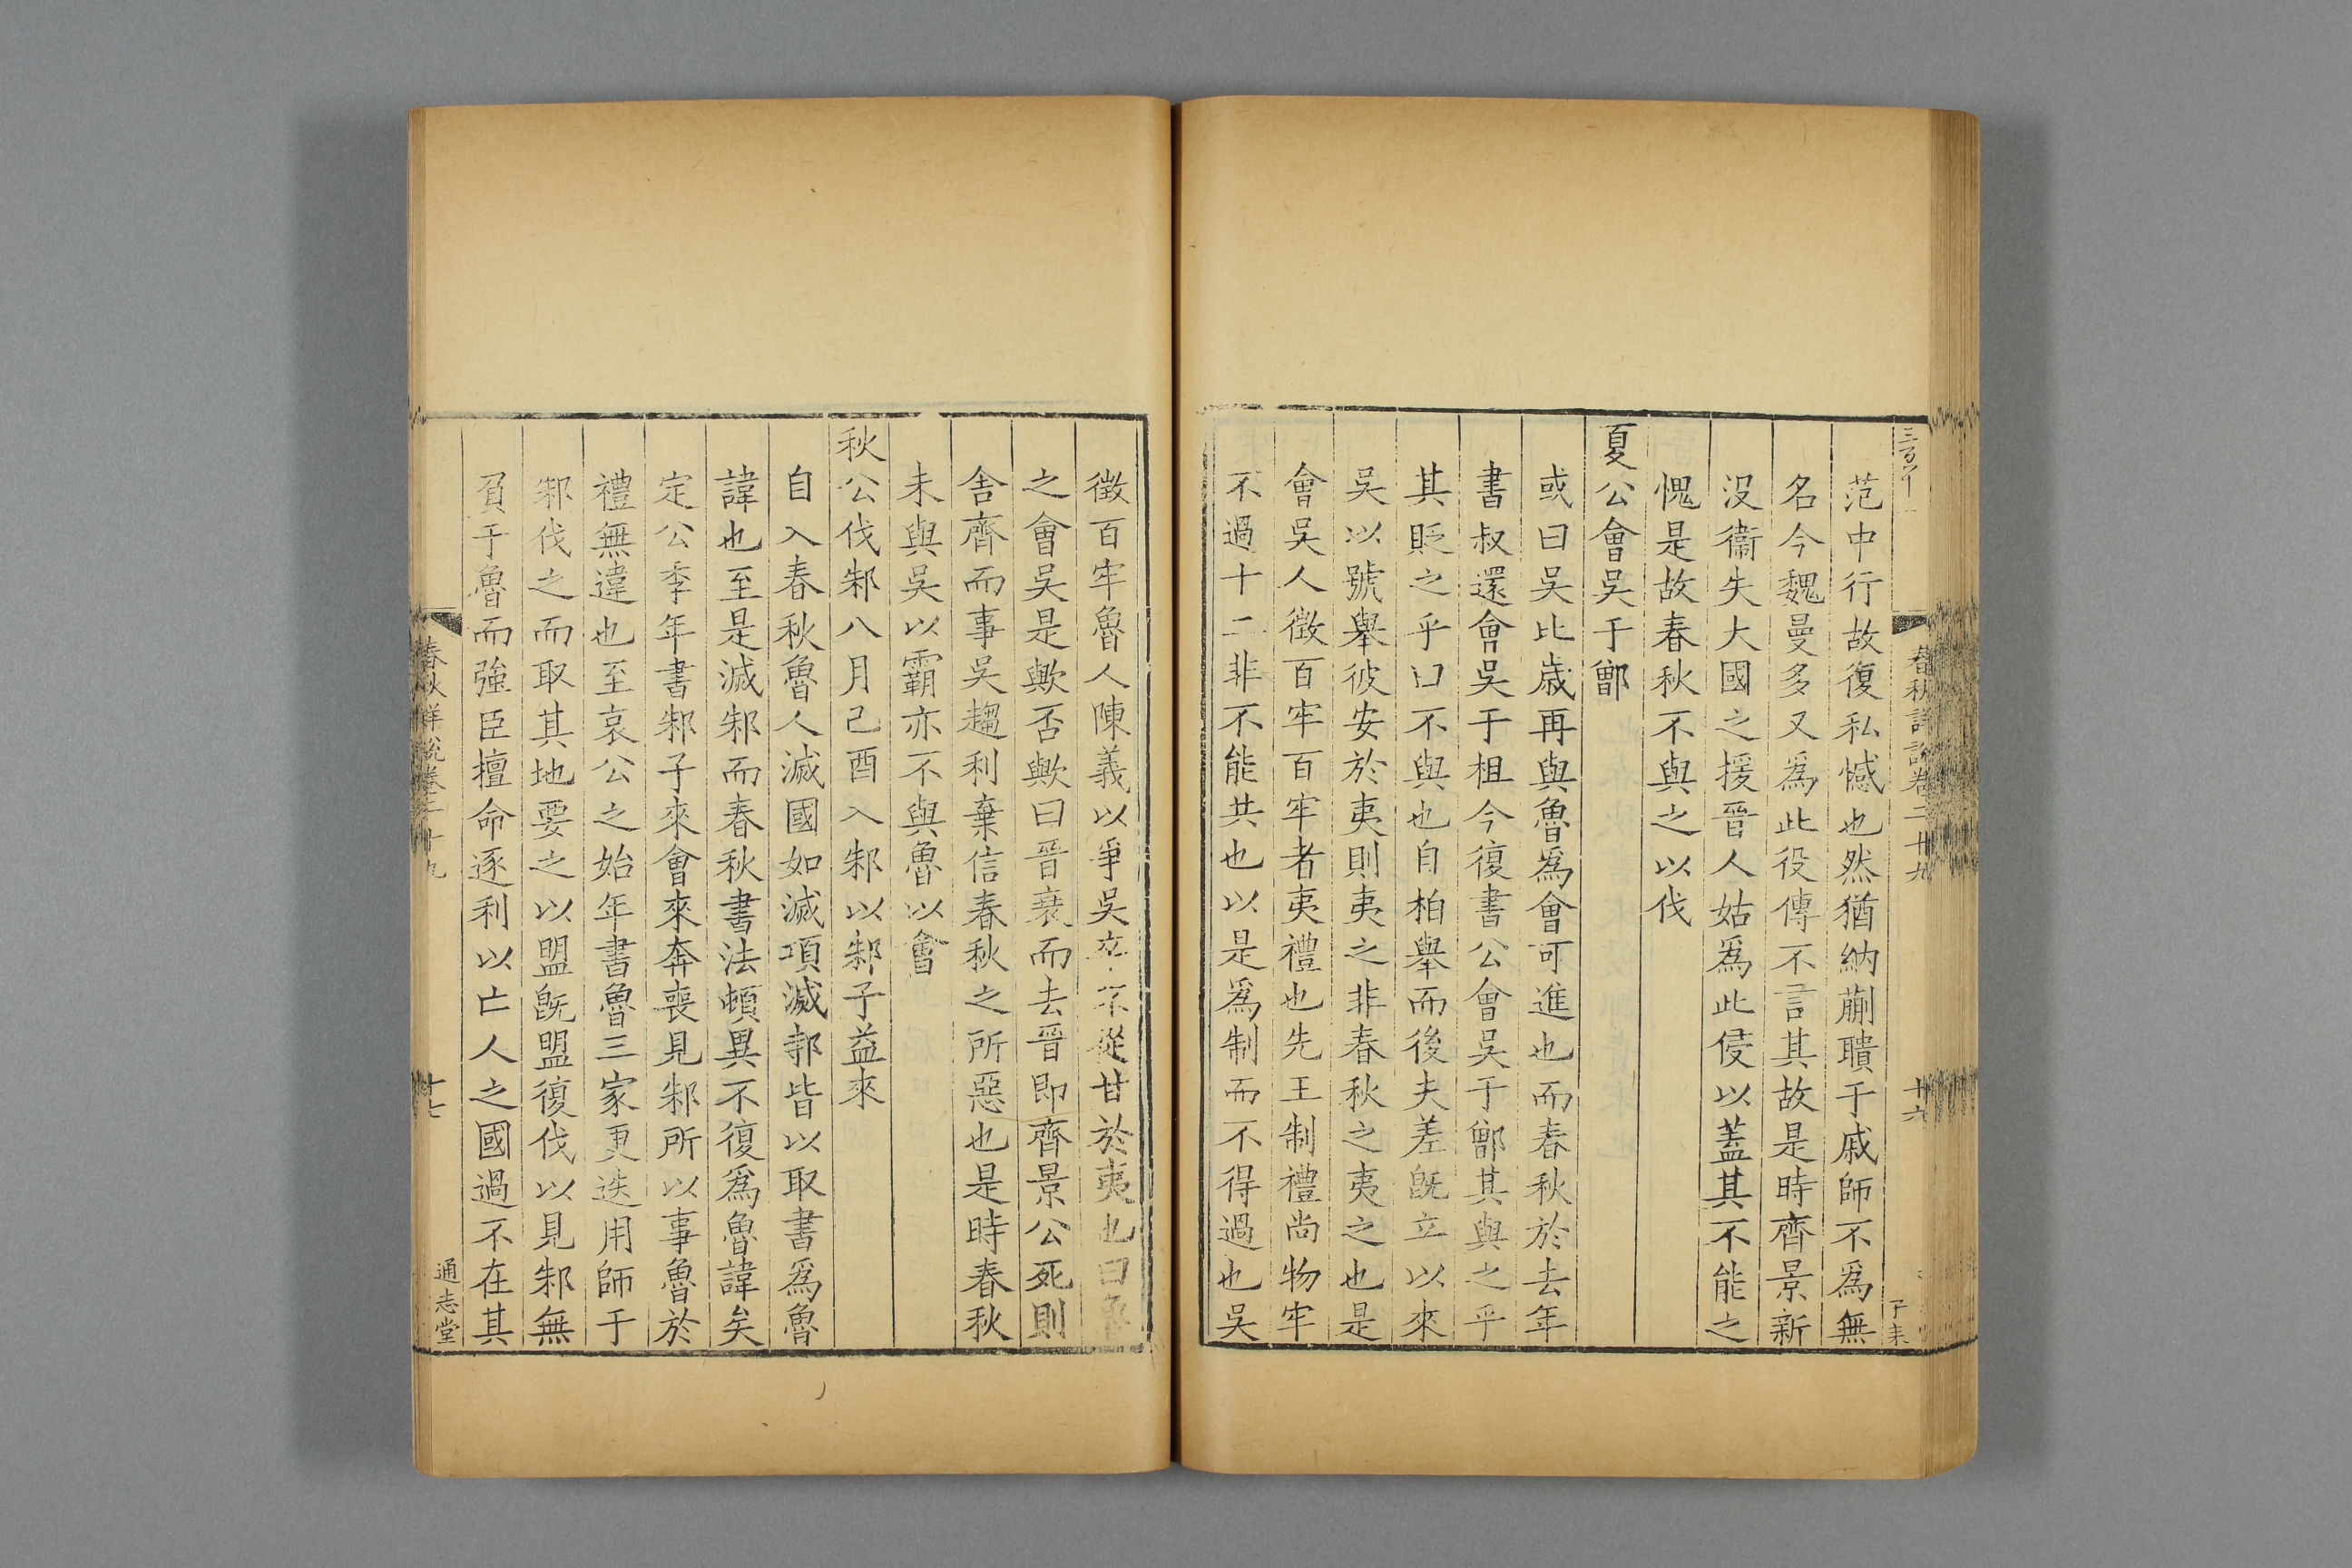 春秋詳說卷二十九
十六
范中行故復私憾也然猶納蒯聵于戚師不爲無
名今魏曼多又爲此役傳不言其故是時齊景新
没衞失大國之援晉人姑爲此侵以蓋其不能之
愧是故春秋不與之以伐
夏公會吳于鄫
或曰吳比歲再與魯爲會可進也而春秋於去年
書叔還會吳于柤今復書公會吳于鄫其與之乎
其貶之乎曰不與也自柏舉而後夫差旣立以來
吳以號舉彼安於夷則夷之非春秋之夷之也是
會吳人徵百牢百牢者夷禮也先王制禮尚物牢
不過十二非不能共也以是爲制而不得過也吳
徵百牢魯人陳義以爭吳卒不從甘於夷也曰魯
之會吳是歟否歟曰晉衰而去晉即齊景公死則
舍齊而事吳趨利棄信春秋之所惡也是時春秋
未與吳以霸亦不與魯以會
秋公伐邾八月己酉入邾以邾子益來
自入春秋魯人滅國如滅項滅邿皆以取書爲魯
諱也至是滅邾而春秋書法頓異不復爲魯諱矣
定公季年書邾子來會來奔喪見邾所以事魯於
禮無違也至哀公之始年書魯三家更迭用師于
邾伐之而取其地要之以盟旣盟復伐以見邾無
負于魯而強臣擅命逐利以亡人之國過不在其
春秋詳說卷二十九
十七
通志堂